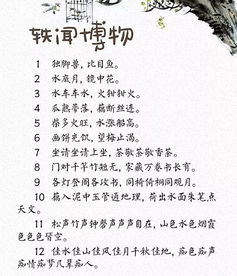 轶闻博物
1 独脚兽，比目鱼。
2 水底月，镜中花。
3 水车车水，火钳钳火。
4 瓜熟蒂落，藕断丝连。
5 柴多火旺，水涨船高。
6 画饼充饥，望梅止渴。
7 坐请坐请上坐，茶敬茶敬香茶。
8 门对千竿竹短无，家藏万卷书长有。
9 各灯登阁各攻书，同椅倚桐同观月。
10 藕入泥中玉管通地理，荷出水面朱笔点
天文。
11 松声竹声钟磬声声声自在，山色水色烟霞
色色色皆空。
12 佳水佳山佳风佳月千秋佳地，痴色痴声
痴情痴梦几辈痴人。